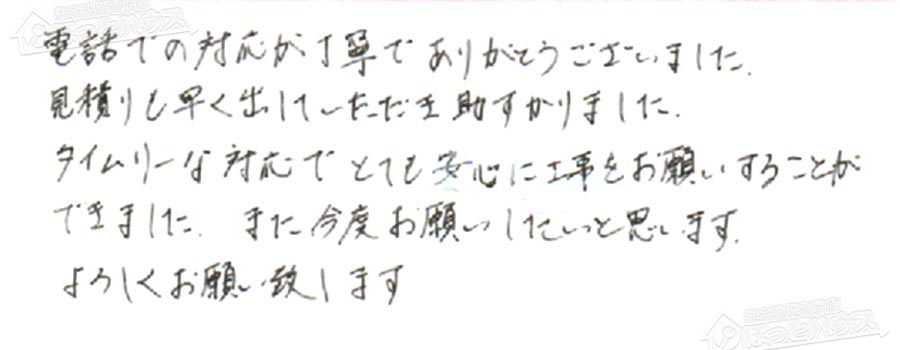 電話での対応が丁寧でありがとうございました.
見積りも早く出していただき助すかりました.
タイムリーな対応でとても安心に工事をお願いすることが
できました. また今度お願いしたいと思います.
よろしくお願い致します
ほっとハウス